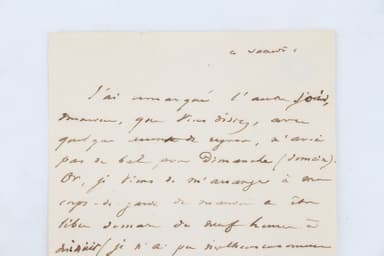 ce samedi
J'ai remarqué l'autre soir,
Monsieur, que vous disiez, avec
quelque regret, n'avoir
pas de bal pour Dimanche (demain).
Or, je viens de m'arranger à mon
corps de garde de manière à être
libre demain de neuf heures à
minuit (je n'ai pu malheureusement